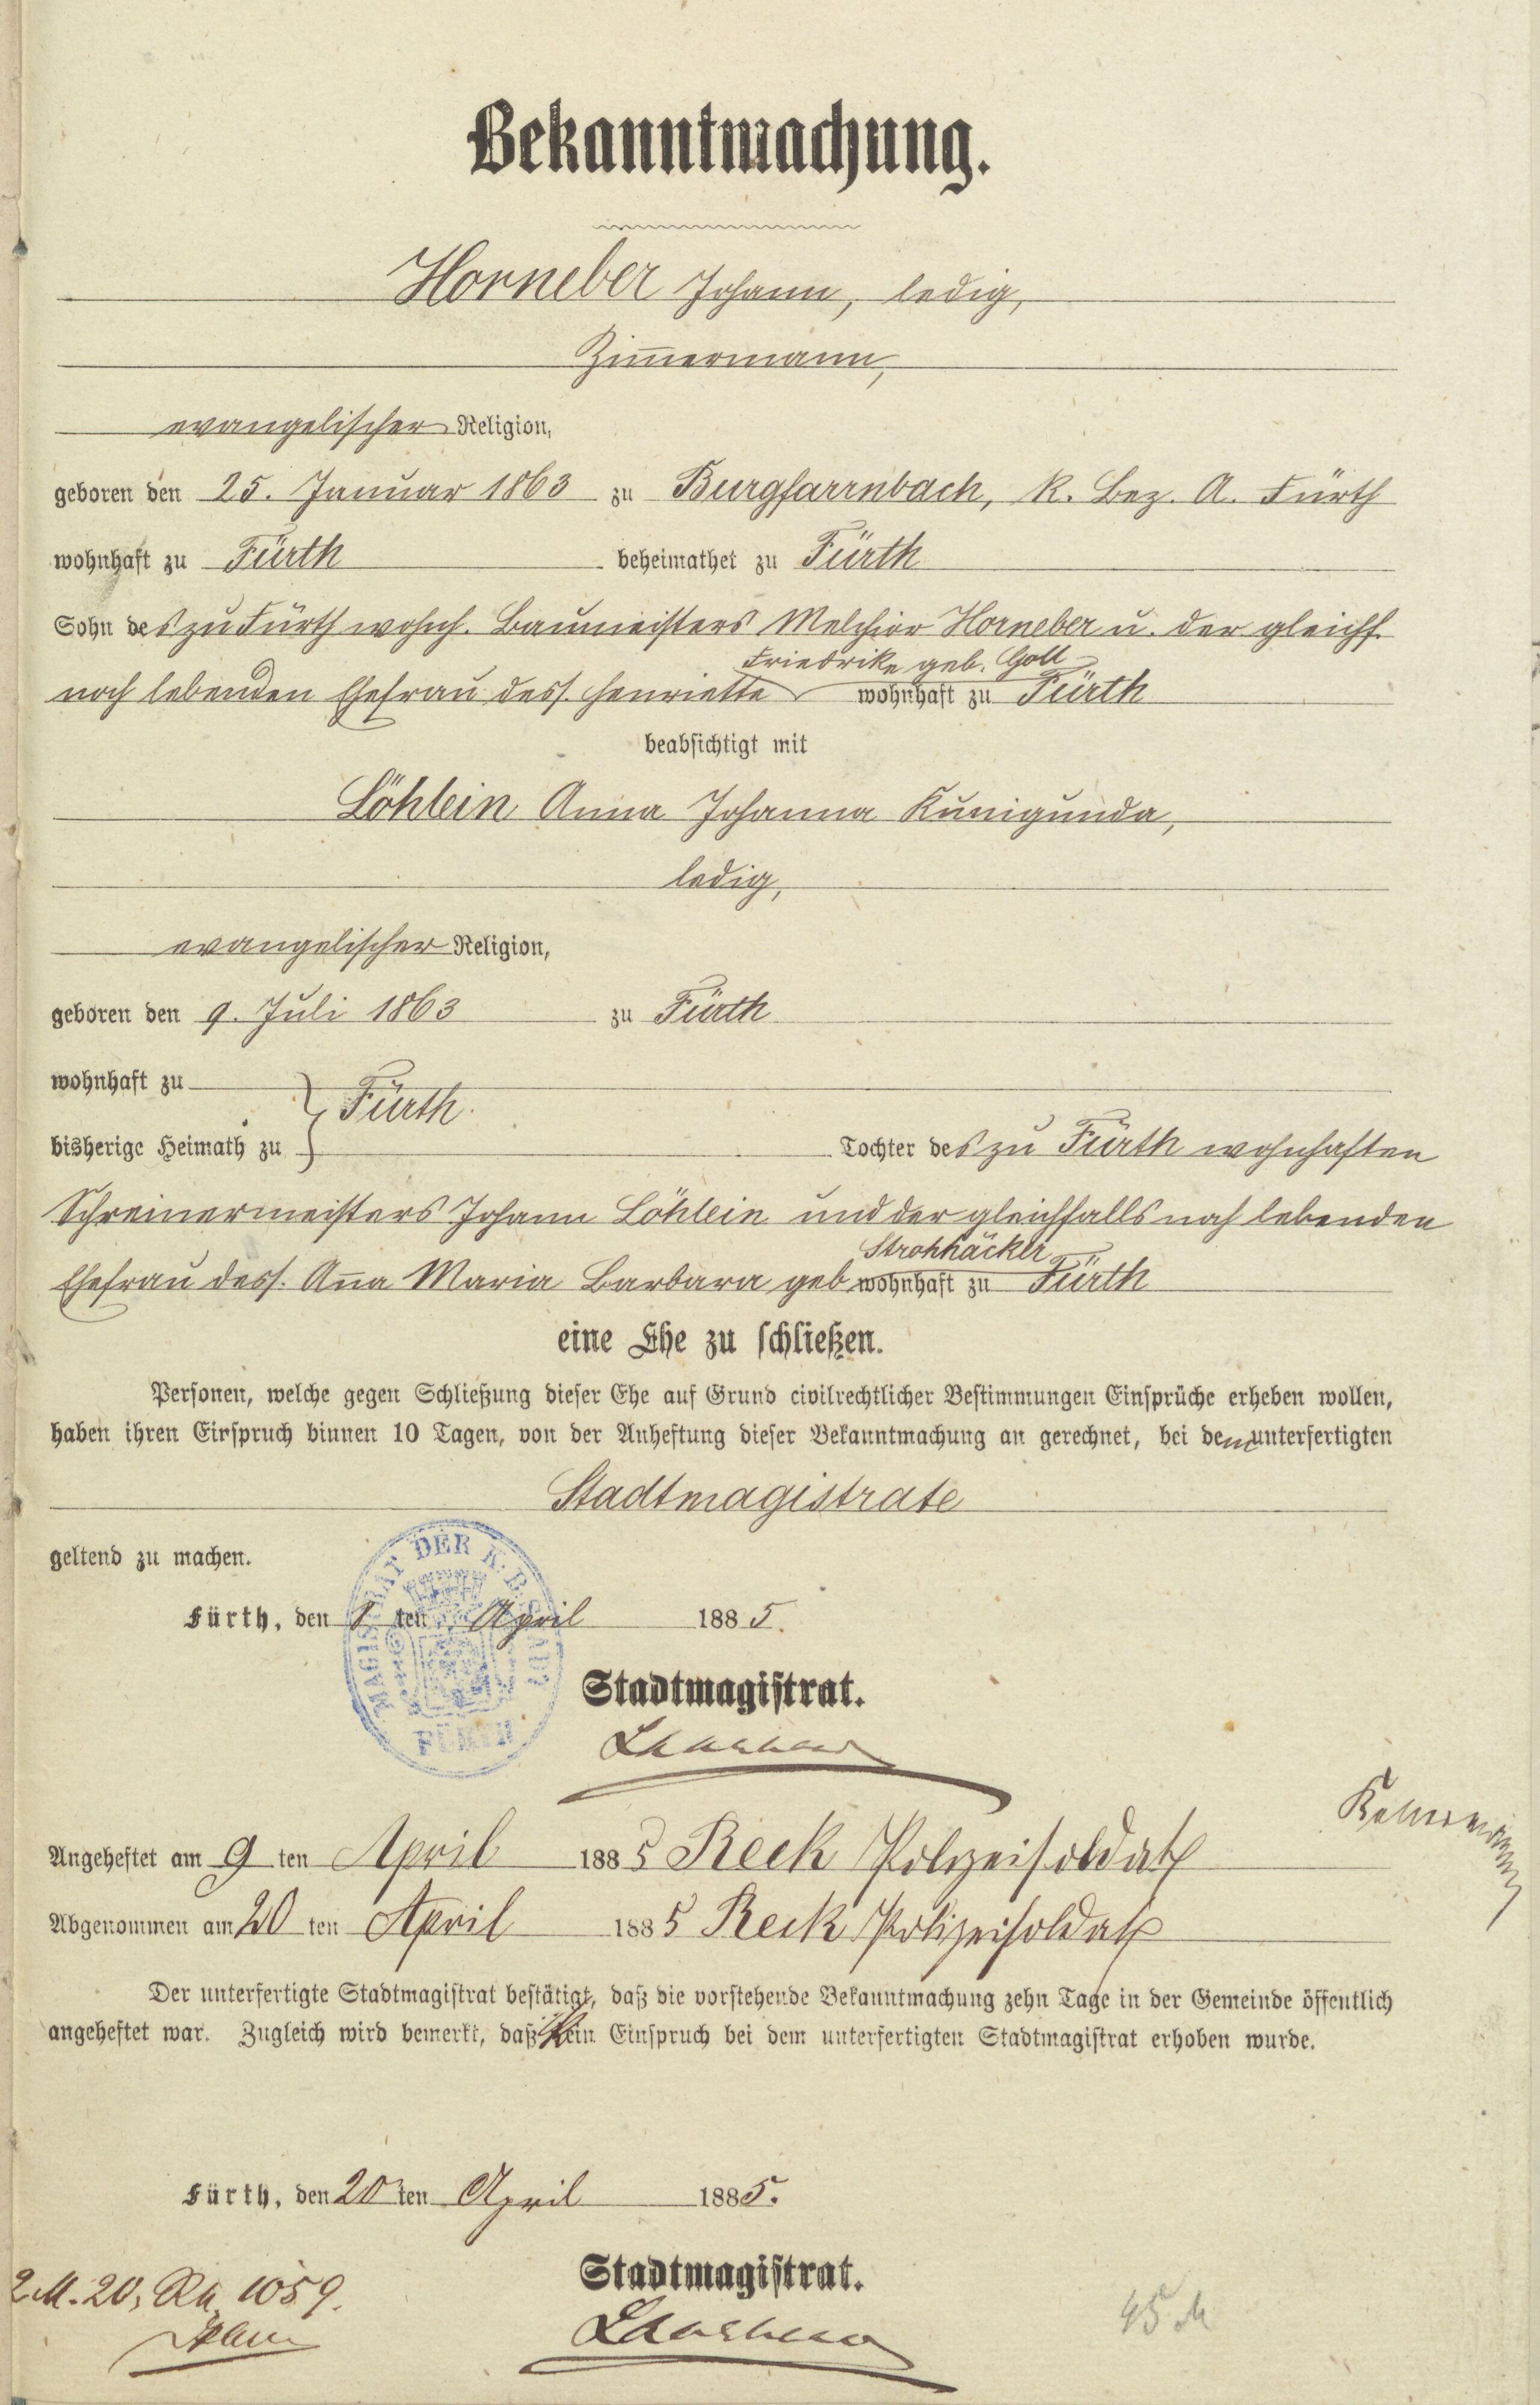 Bekanntmachung.
Horneber Johann, ledig,
Zim̅ermann,
evangelischer Religion,
geboren den 25. Januar 1863 zu Burgfarrnbach, K. Bez. A. Fürth
wohnhaft zu Fürth beheimathet zu Fürth
Sohn des zu Fürth wohnh. Baumeisters Melchior Horneber u. der gleichf.
Friedrike geb. Goll
noch lebenden Ehefrau dess. Henriette wohnhaft zu Fürth
beabsichtigt mit
Löhlein Anna Johanna Kunigunda,
ledig,
evangelischer Religion,
geboren den 9. Juli 1863 zu Fürth
wohnhaft zu
Fürth.
bisherige Heimath zu Tochter des zu Fürth wohnhaften
Schreinermeisters Johann Löhlein und der gleichfalls noch lebenden
Strohhäcker
Ehefrau dess. An̅a Maria Barbara geb. wohnhaft zu Fürth
eine Ehe zu schließen.
Personen, welche gegen Schließung dieser Ehe auf Grund civilrechtlicher Bestimmungen Einsprüche erheben wollen,
haben ihren Einspruch binnen 10 Tagen, von der Anheftung dieser Bekanntmachung an gerechnet, bei dem unterfertigten
Stadtmagistrate
geltend zu machen.
MAGISTRAT DER K. B. FÜRTH
Fürth, den 8 ten April 1885.
Stadtmagistrat.
Angeheftet am 9 ten April 1885 Reck Polizeisoldat
Abgenommen am 20 ten April 1885 Reck Polizeisoldat
Der unterfertigte Stadtmagistrat bestätigt, daß die vorstehende Bekanntmachung zehn Tage in der Gemeinde öffentlich
angeheftet war. Zugleich wird bemerkt, daß kein Einspruch bei dem unterfertigten Stadtmagistrat erhoben wurde.
Fürth, den 20 ten April 1885.
Stadtmagistrat.
2 M. 20, 1059.
45 M